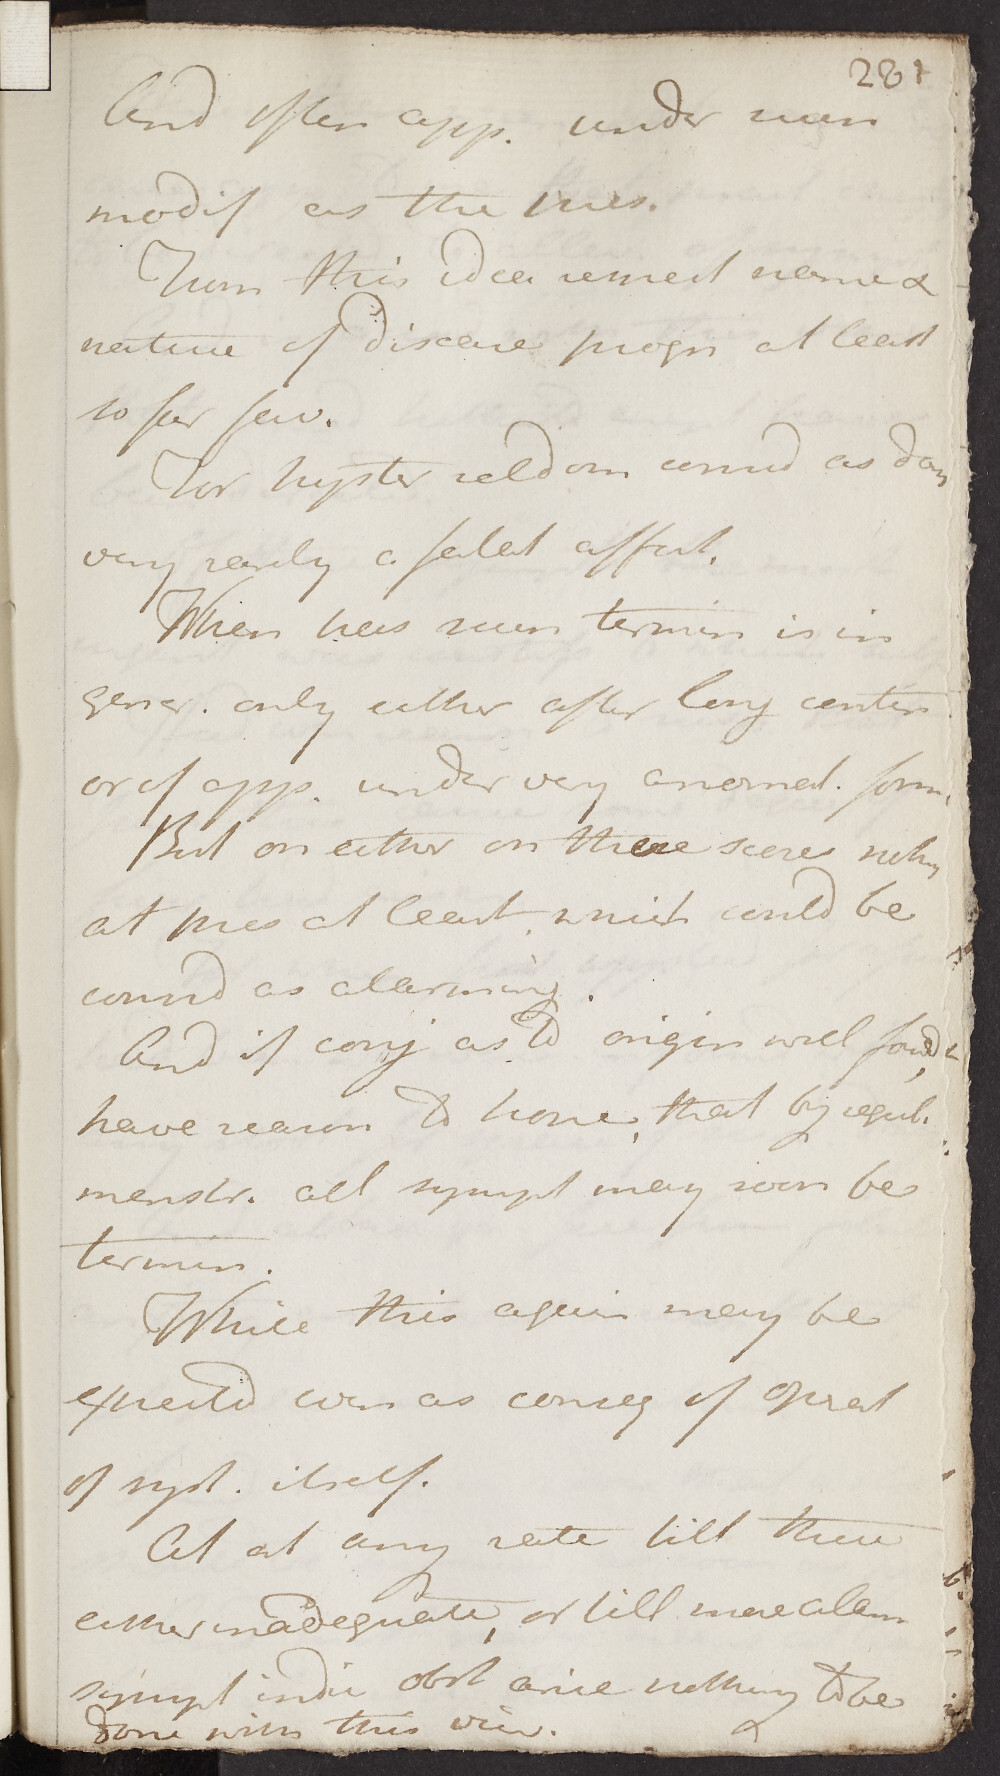 281
And often app. under such
modif as the pres.
From this idea respect name &
nature of disease progn at least
so far fav.
For hyster seldom consid as dan
very rarely a fatal affect.
When has such termin is in
gener. only either after long contin
or if app. under very anomal. form.
But on either on these scores nothing
at pres at least, which could be
consid as allarming.
And if conj as to origin well found
have reason to hope, that by regul.
menstr. all sympt may soon be
termin.
While this again may be
expected even as conseq of operat
of syst. itself.
At at any rate till these
either inadequate, or till more alarm
sympt indic obst arise nothing to be
done with this view.